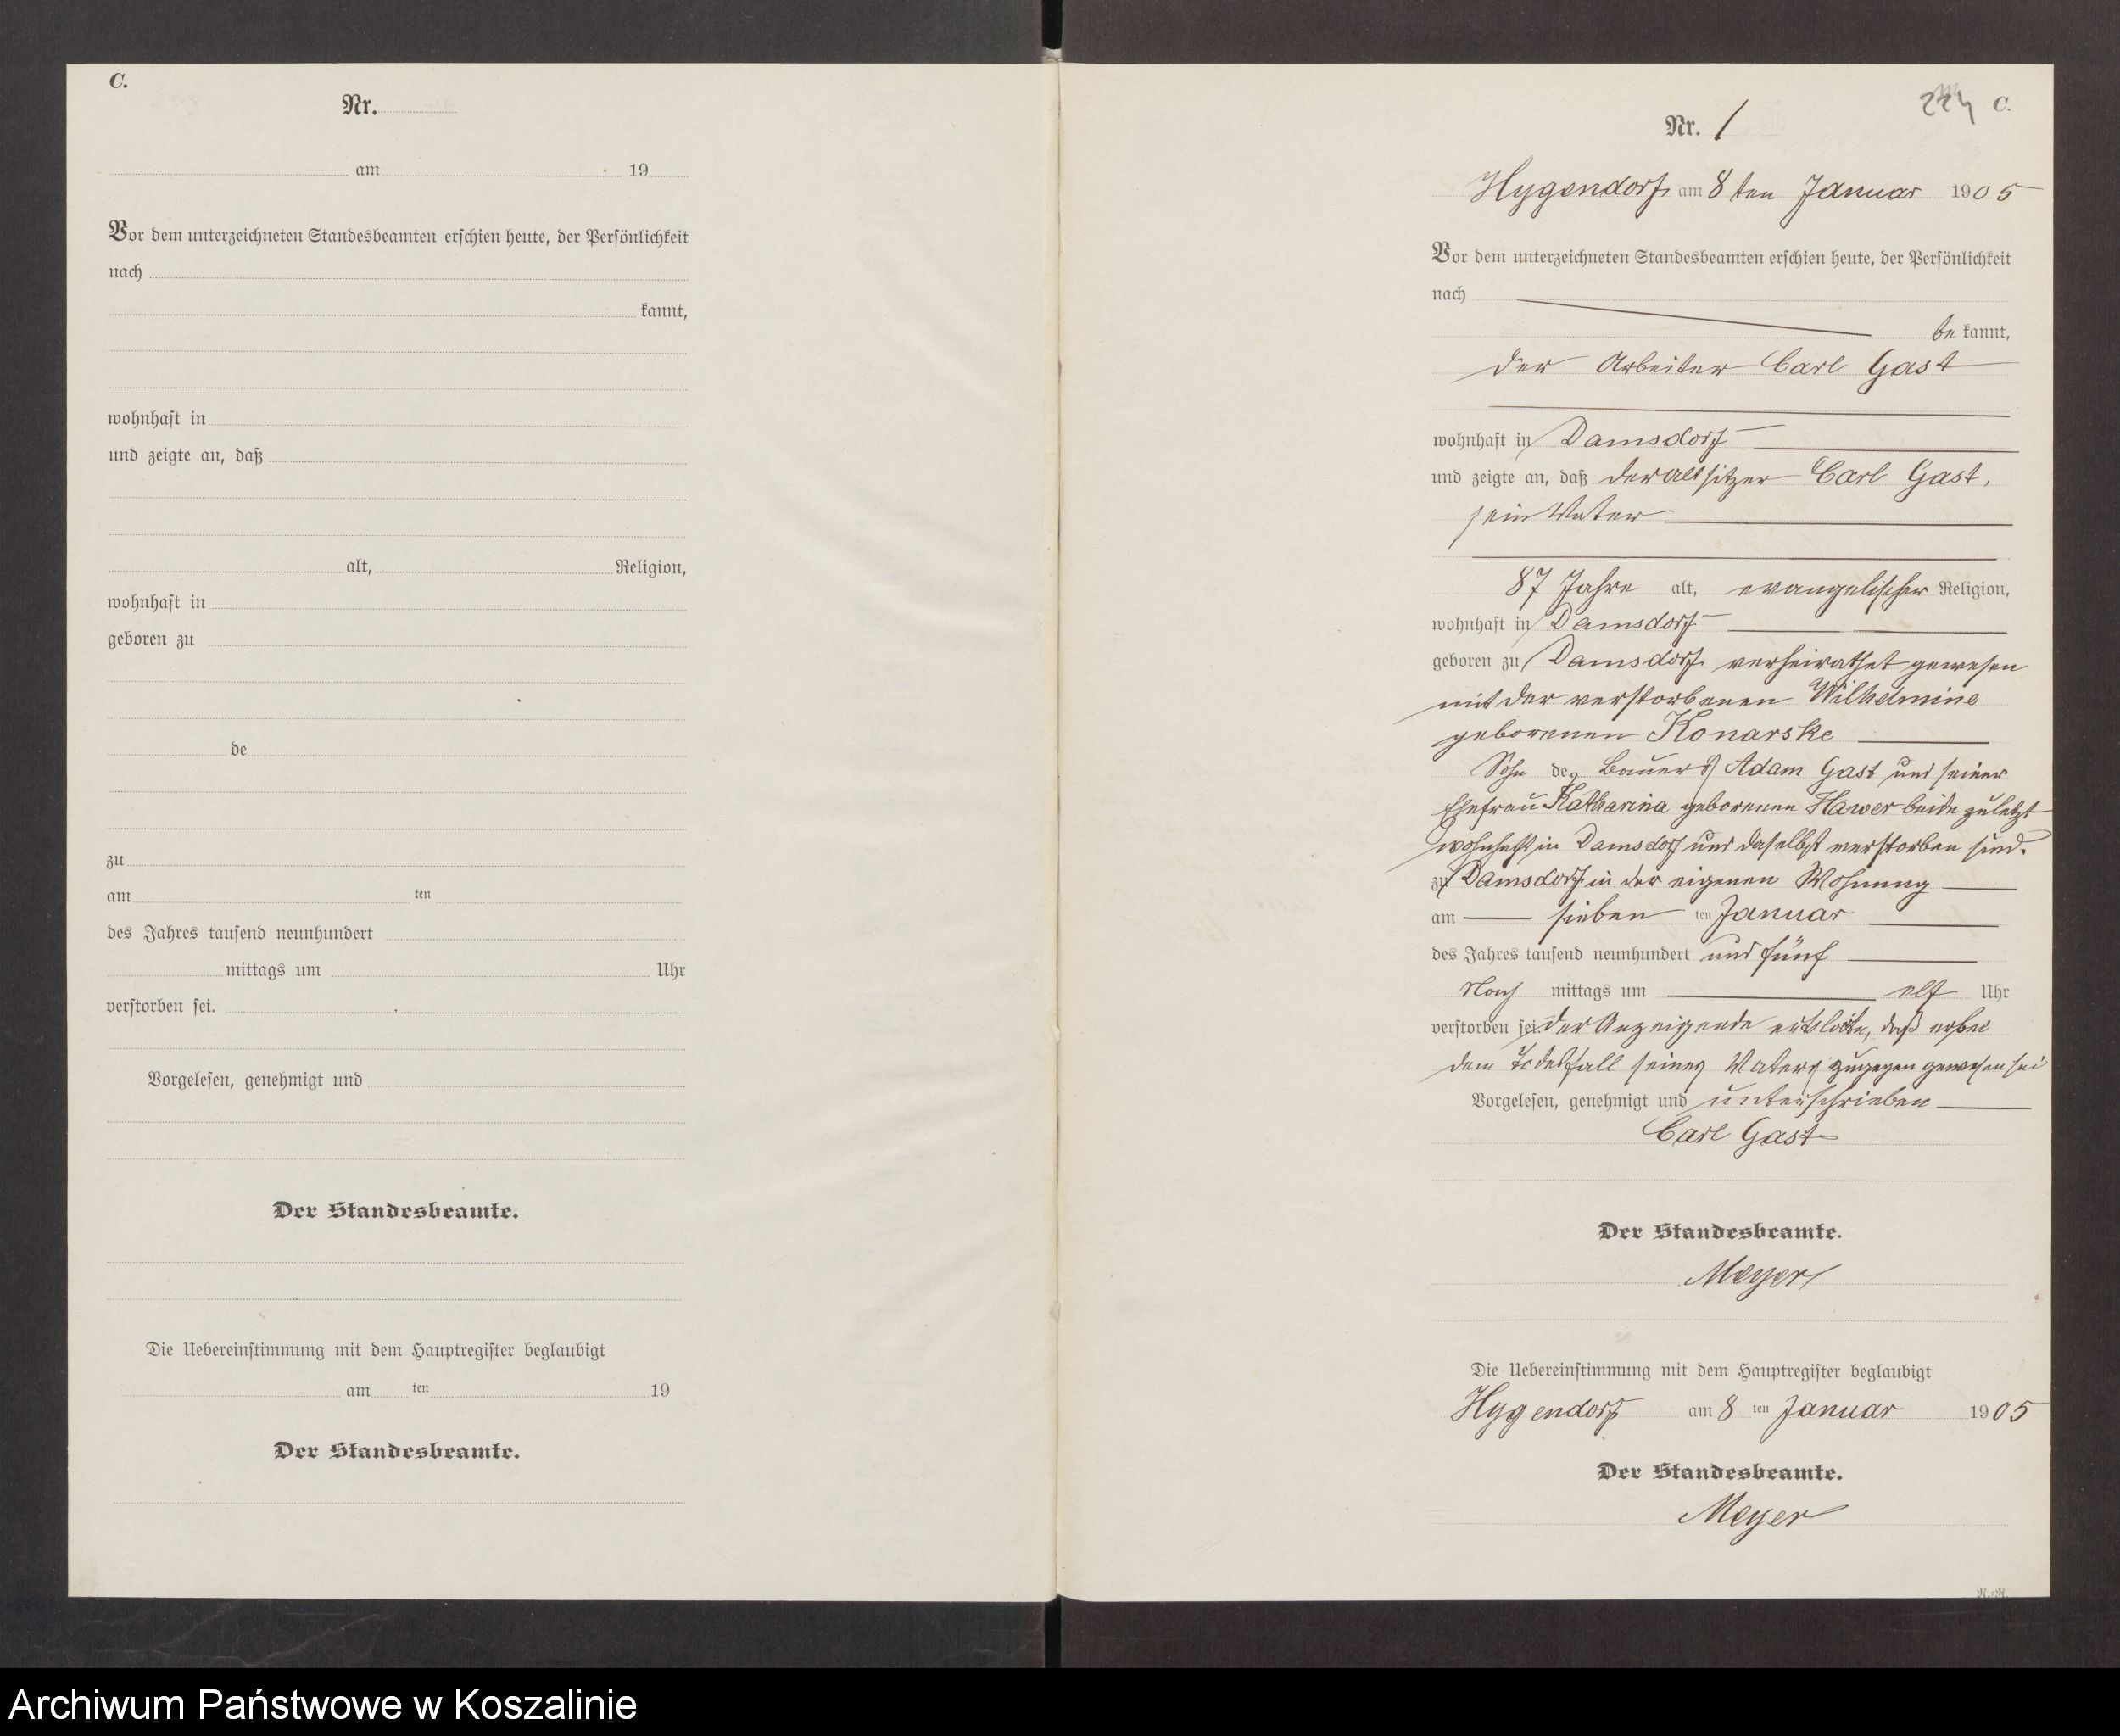 C.
Nr.
am 19
Vor dem unterzeichneten Standesbeamten erschien heute, der Persönlichkeit
nach
kannt,
wohnhaft in
und zeigte an, daß
alt, Religion,
wohnhaft in
geboren zu
de
zu
am ten
des Jahres tausend neunhundert
mittags um Uhr
verstorben sei.
Vorgelesen, genehmigt und
Der Standesbeamte.
Die Uebereinstimmung mit dem Hauptregister beglaubigt
am ten 19
Der Standesbeamte.
224 C.
Nr. 1
Hygendorf am 8ten Januar 1905
Vor dem unterzeichneten Standesbeamten erschien heute, der Persönlichkeit
nach
be kannt,
der Arbeiter Carl Gast
wohnhaft in Damsdorf
und zeigte an, daß der Altsitzer Carl Gast,
sein Vater
87 Jahre alt, evangelischer Religion,
wohnhaft in Damsdorf
geboren zu Damsdorf verheirathet gewesen
mit der verstorbenen Wilhelmine
geborenen Konarske
Sohn des Bauers Adam Gast und seiner
Ehefrau Katharina geborenen Hawer beide zuletzt
wohnhaft in Damsdorf und daselbst verstorben sind.
zu Damsdorf in der eigenen Wohnung
am sieben ten Januar
des Jahres tausend neunhundert und fünf
Nach mittags um elf Uhr
verstorben sei der Anzeigende daß er bei
dem Todesfall seines Vaters zugegen gewesen sei
Vorgelesen, genehmigt und unterschrieben
Carl Gast
Der Standesbeamte.
Meyer
Die Uebereinstimmung mit dem Hauptregister beglaubigt
Hygendorf am 8 ten Januar 1905
Der Standesbeamte.
Meyer
Archiwum Państwowe w Koszalinie